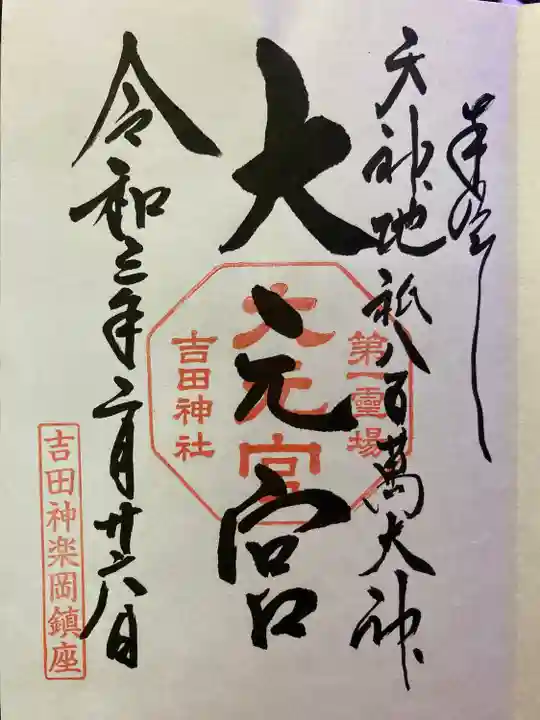 奉拝
天神地祇八百萬大神
大元宮
第一靈場
大元宮
吉田神社
令和三年二月廿六日
吉田神楽岡鎮座